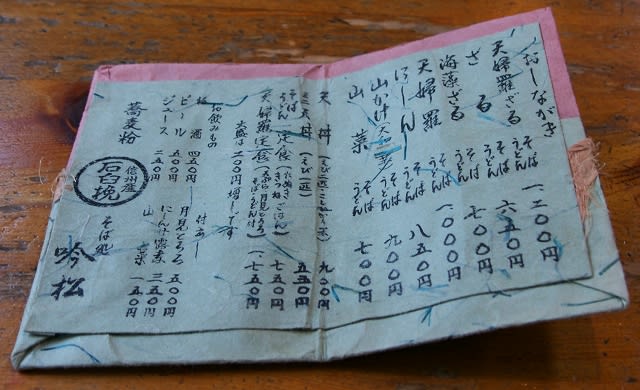 おしながき
天婦羅ざる そば うどん 一、二〇〇円
ざる そば うどん 六五〇円
海藻ざる そば うどん 七〇〇円
天婦羅 そば うどん 一、〇〇〇円
にしん そば うどん 八五〇円
山かけ そば うどん 九〇〇円
山菜 そば うどん 七〇〇円
天丼 九〇〇円
五五〇円
そば うどん 定食 七五〇円
天婦羅定食 一、五〇〇円
大盛は二〇〇円増しです
お飲みもの
酒 四五〇円
ビール 五〇〇円
ジュース 二五〇円
月見とろろ 五〇〇円
にしん 露煮 三五〇円
山菜 一五〇円
蕎麦粉
信州産
石臼挽
そば処
吟松